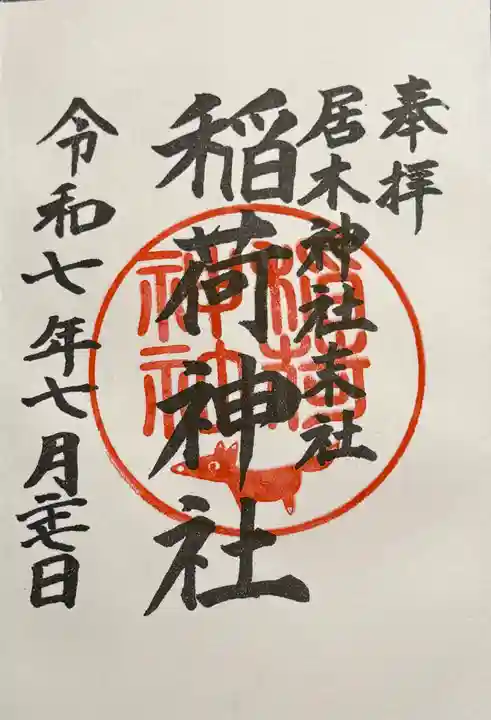 奉拝
居木神社末社
稲荷神社
稲荷
神社
令和七年七月二十七日